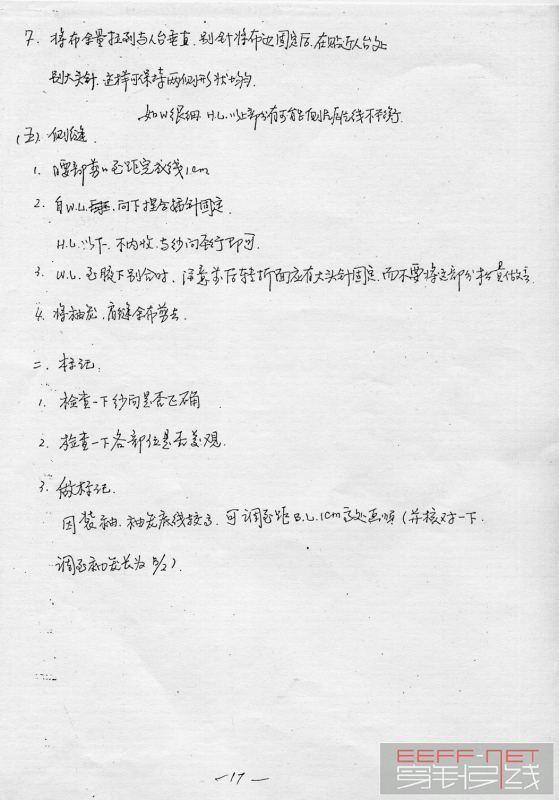 7. 将布余量拉到与人台垂直. 别针将布边固定后, 在贴近人台处
别大头针. 这样可保持两侧形状均匀.
如W很细. H.L.以上部分有可能侧片后经线不平衡.
(五). 侧缝.
1. 腰部剪口至距完成线1cm
2. 自W.L. 向下捏合掐针固定.
H.L.以下. 不内收. 与纱向平行即可.
3. W.L.至腋下别合时. 注意前后转折面应有大头针固定, 而不要将这部分松量做
4. 将袖窿, 肩缝余布剪去.
二. 标记.
1. 检查一下纱向是否正确
2. 检查一下各部位是否美观.
3. 做标记.
因装袖. 袖窿底线较高. 可调至距B.L.1cm高处画顺 (并核对一下.
调至 窿长为B/2).
— 17 —
EEFF-NET
穿针引线